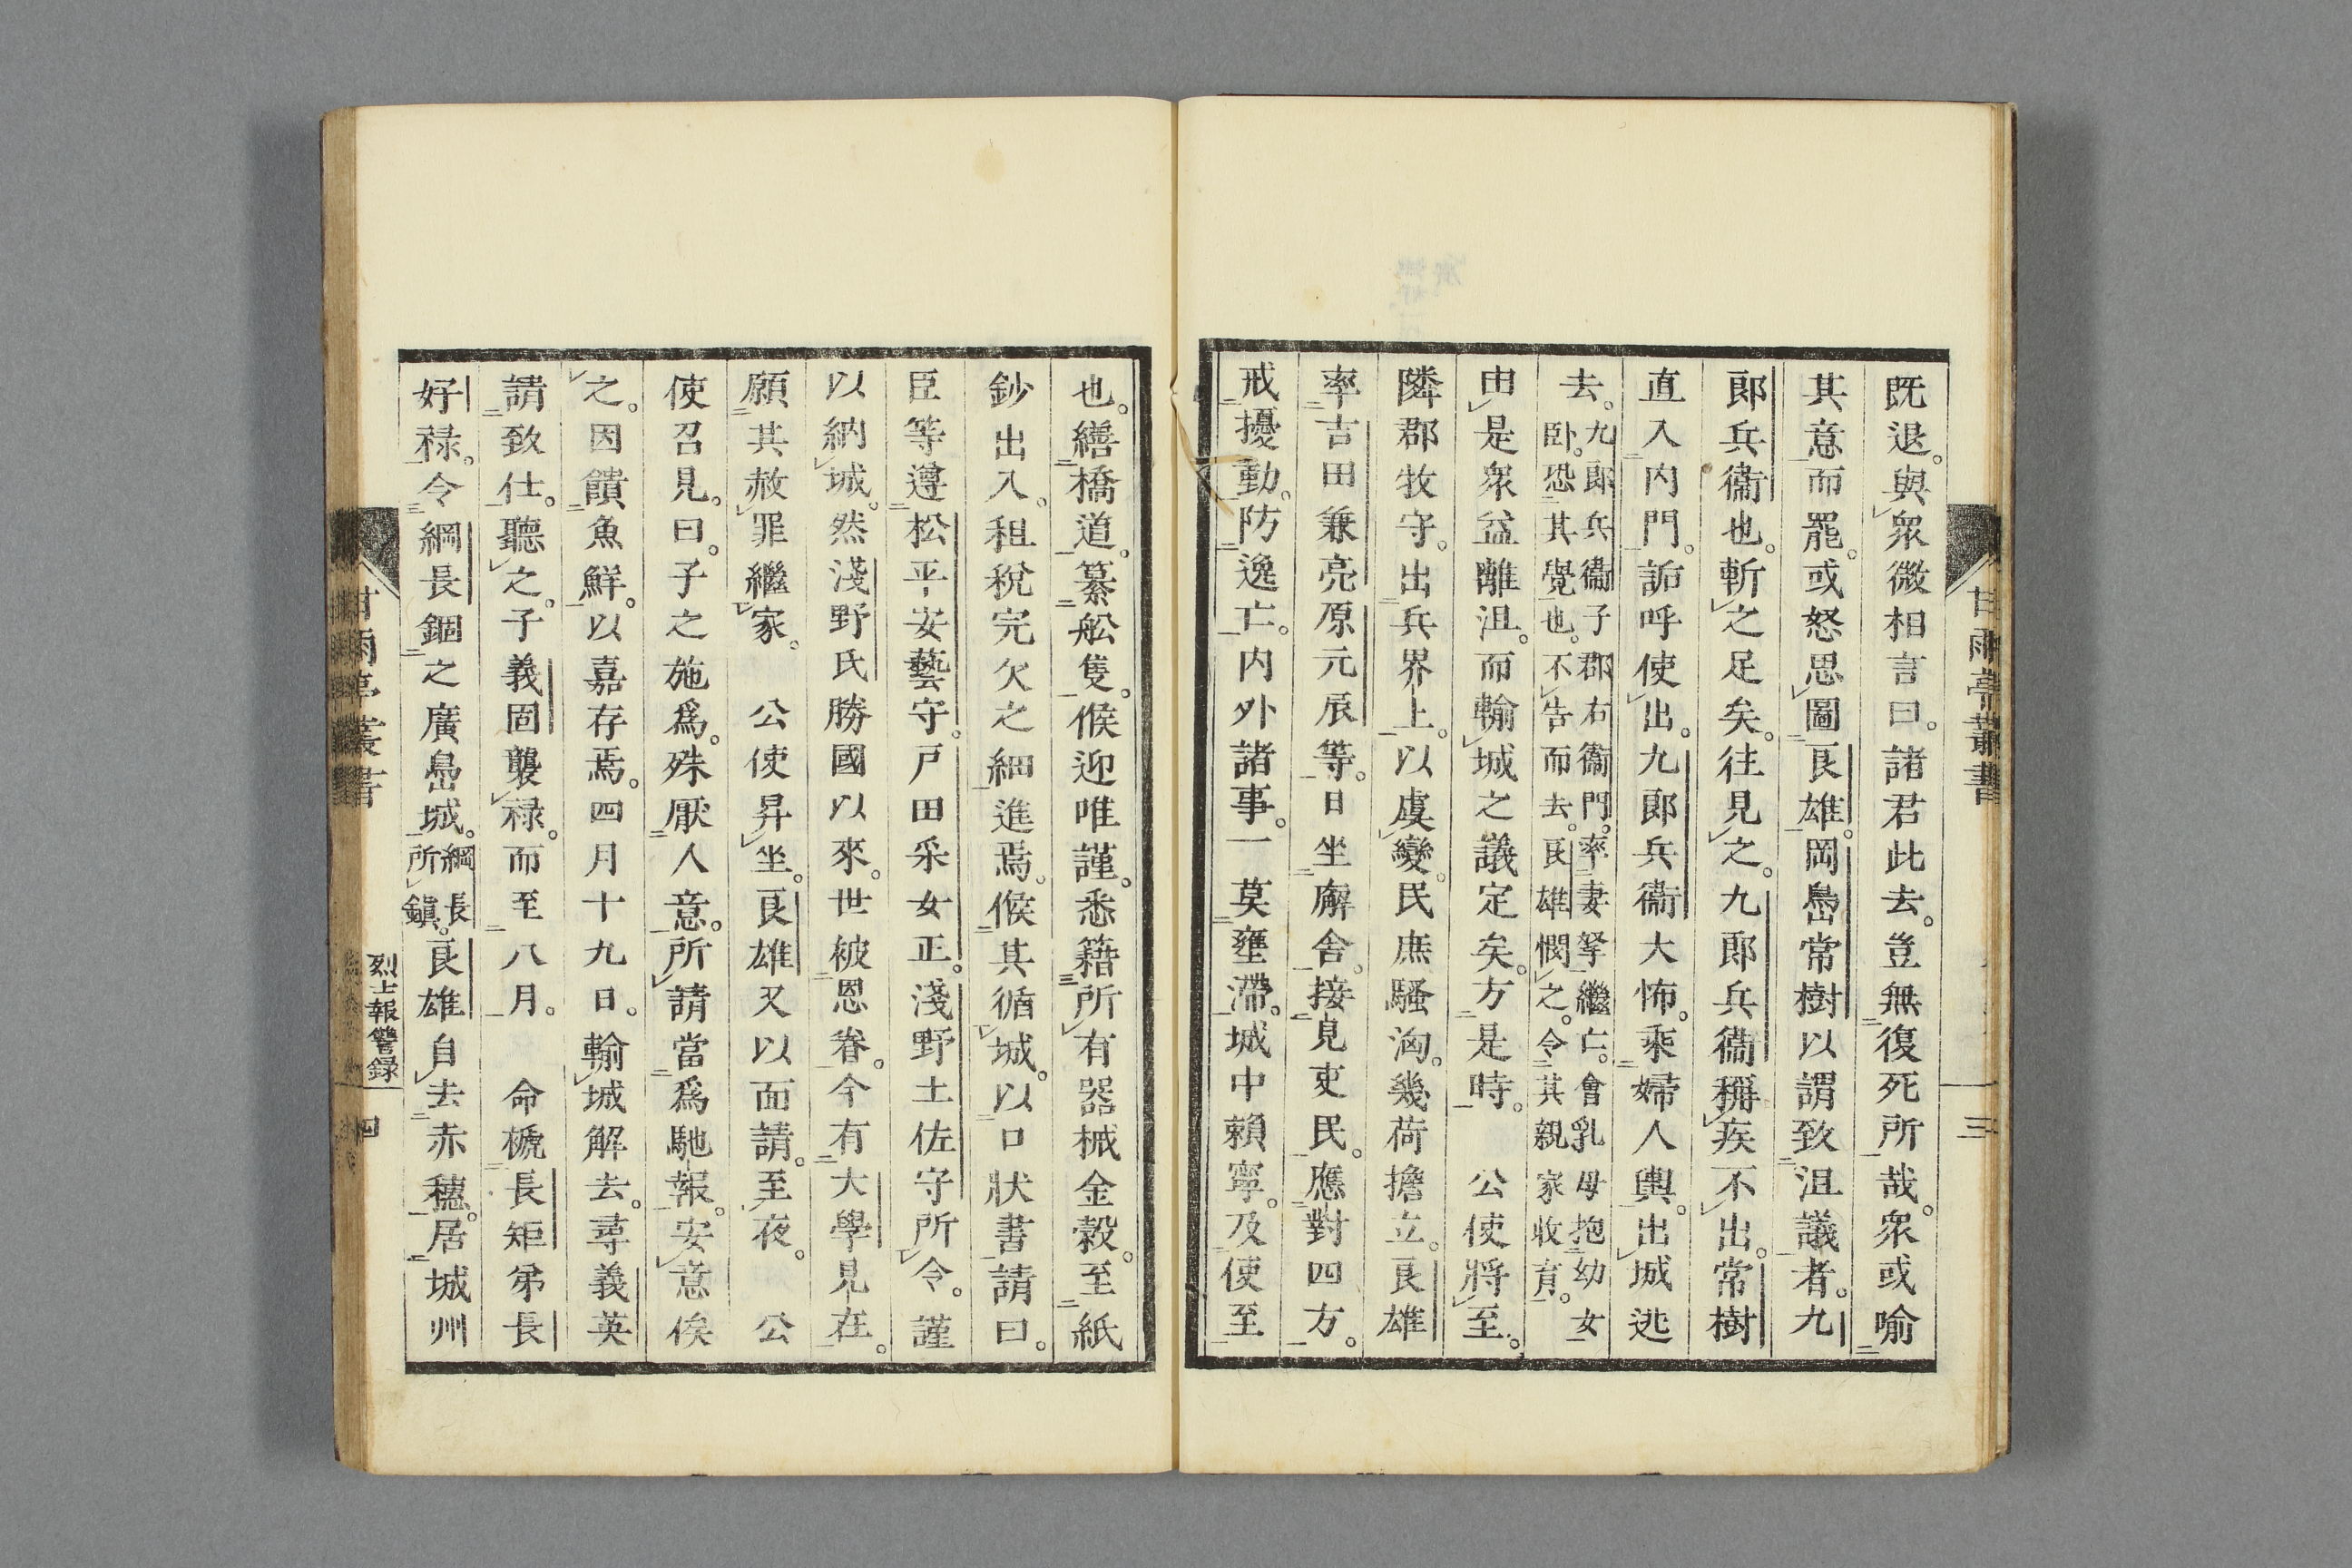 甘雨亭叢書
三
既退。與衆微相言曰。諸君此去。豈無復死所哉。衆或喻
其意而罷。或怒思圖良雄。岡島常樹以謂致沮議者。九
郎兵衞也。斬之足矣。往見之。九郎兵衞稱疾不出。常樹
直入内門。詬呼使出。九郎兵衞大怖。乘婦人輿。出城逃
去。九郎兵衞子郡右衞門。率妻孥繼亡。會乳母抱幼女
臥。恐其覺也。不告而去。良雄憫之。令其親家收育。
由是衆益離沮。而輸城之議定矣。方是時。 公使將至。
隣郡牧守。出兵界上。以虞變。民庶騷洶。幾荷擔立。良雄
率吉田兼亮原元辰等。日坐廨舍。接見吏民。應對四方。
戒擾動。防逸亡。内外諸事。一莫壅滯。城中賴寧。及使至
也。繕橋道。纂舩隻。候迎唯謹。悉籍所有器械金穀。至紙
鈔出入。租稅完欠之細進焉。候其循城。以口狀書請曰。
臣等遵松平安藝守。戸田采女正。淺野土佐守所令。謹
以納城。然淺野氏勝國以來。世被恩眷。今有大學見在。
願其赦罪繼家。 公使昇坐。良雄又以面請。至夜。 公
使召見。曰。子之施爲。殊厭人意。所請當爲馳報。安意俟
之。因饋魚鮮。以嘉存焉。四月十九日。輸城解去。尋義英
請致仕。聽之。子義固襲祿。而至八月。 命褫長矩弟長
好祿。令綱長錮之廣島城。綱長所鎭。良雄自去赤穗。居城州
甘雨亭叢書
烈士報讐録
四